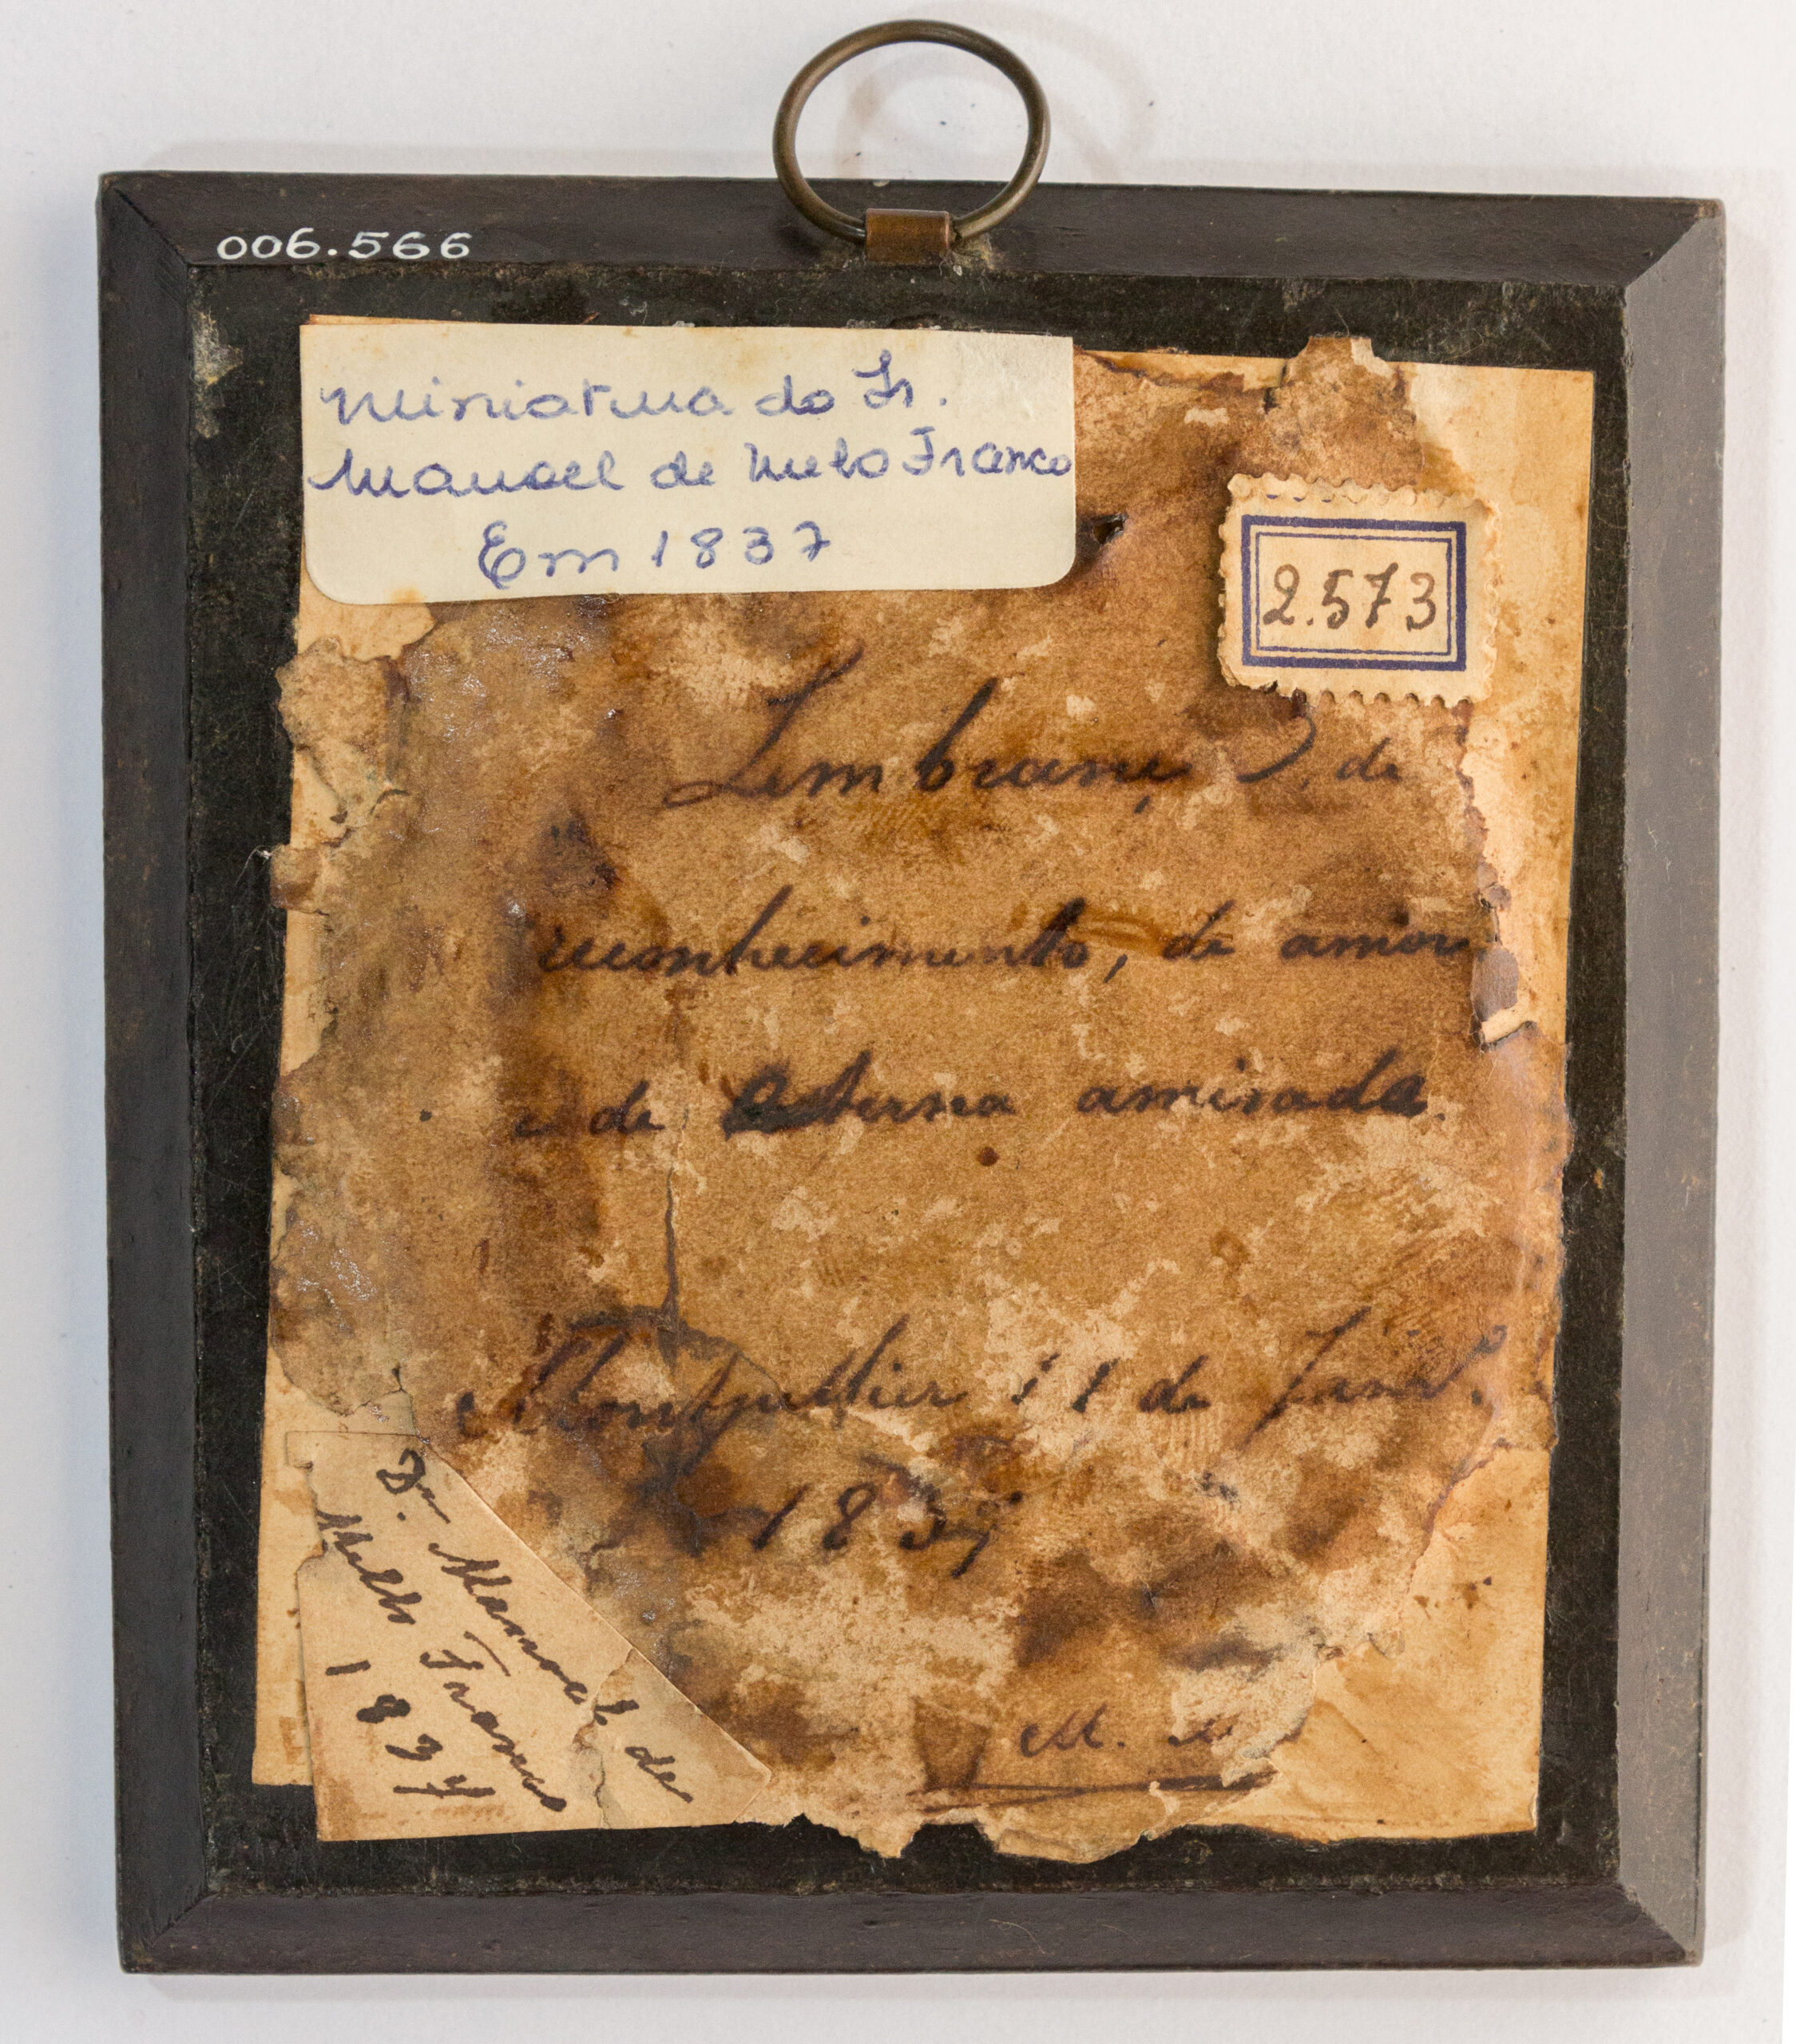 006.566
Miniatura do Sr.
Manoel de Melo Franco
Em 1837
2.573
Lembrança, de
reconhecimento, de amor
e de eterna amisade.
Montpellier 11 de Janr.º
1837
M. M.
Dr. Manoel de
Mello Franco
1837